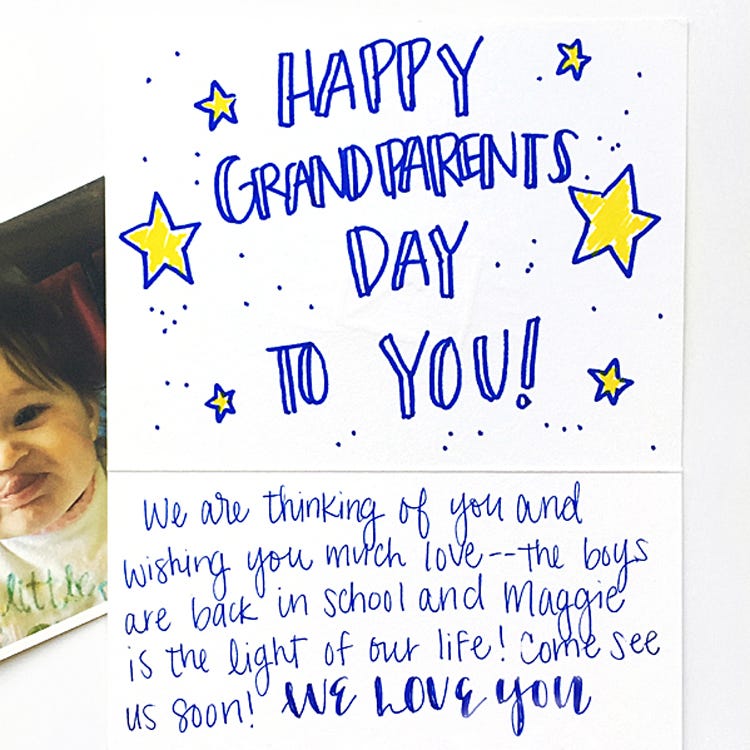 HAPPY
GRANDPARENTS
DAY
TO YOU!
We are thinking of you and
wishing you much love--the boys
are back in school and Maggie
is the light of our life! Come see
us soon! WE LOVE YOU
little